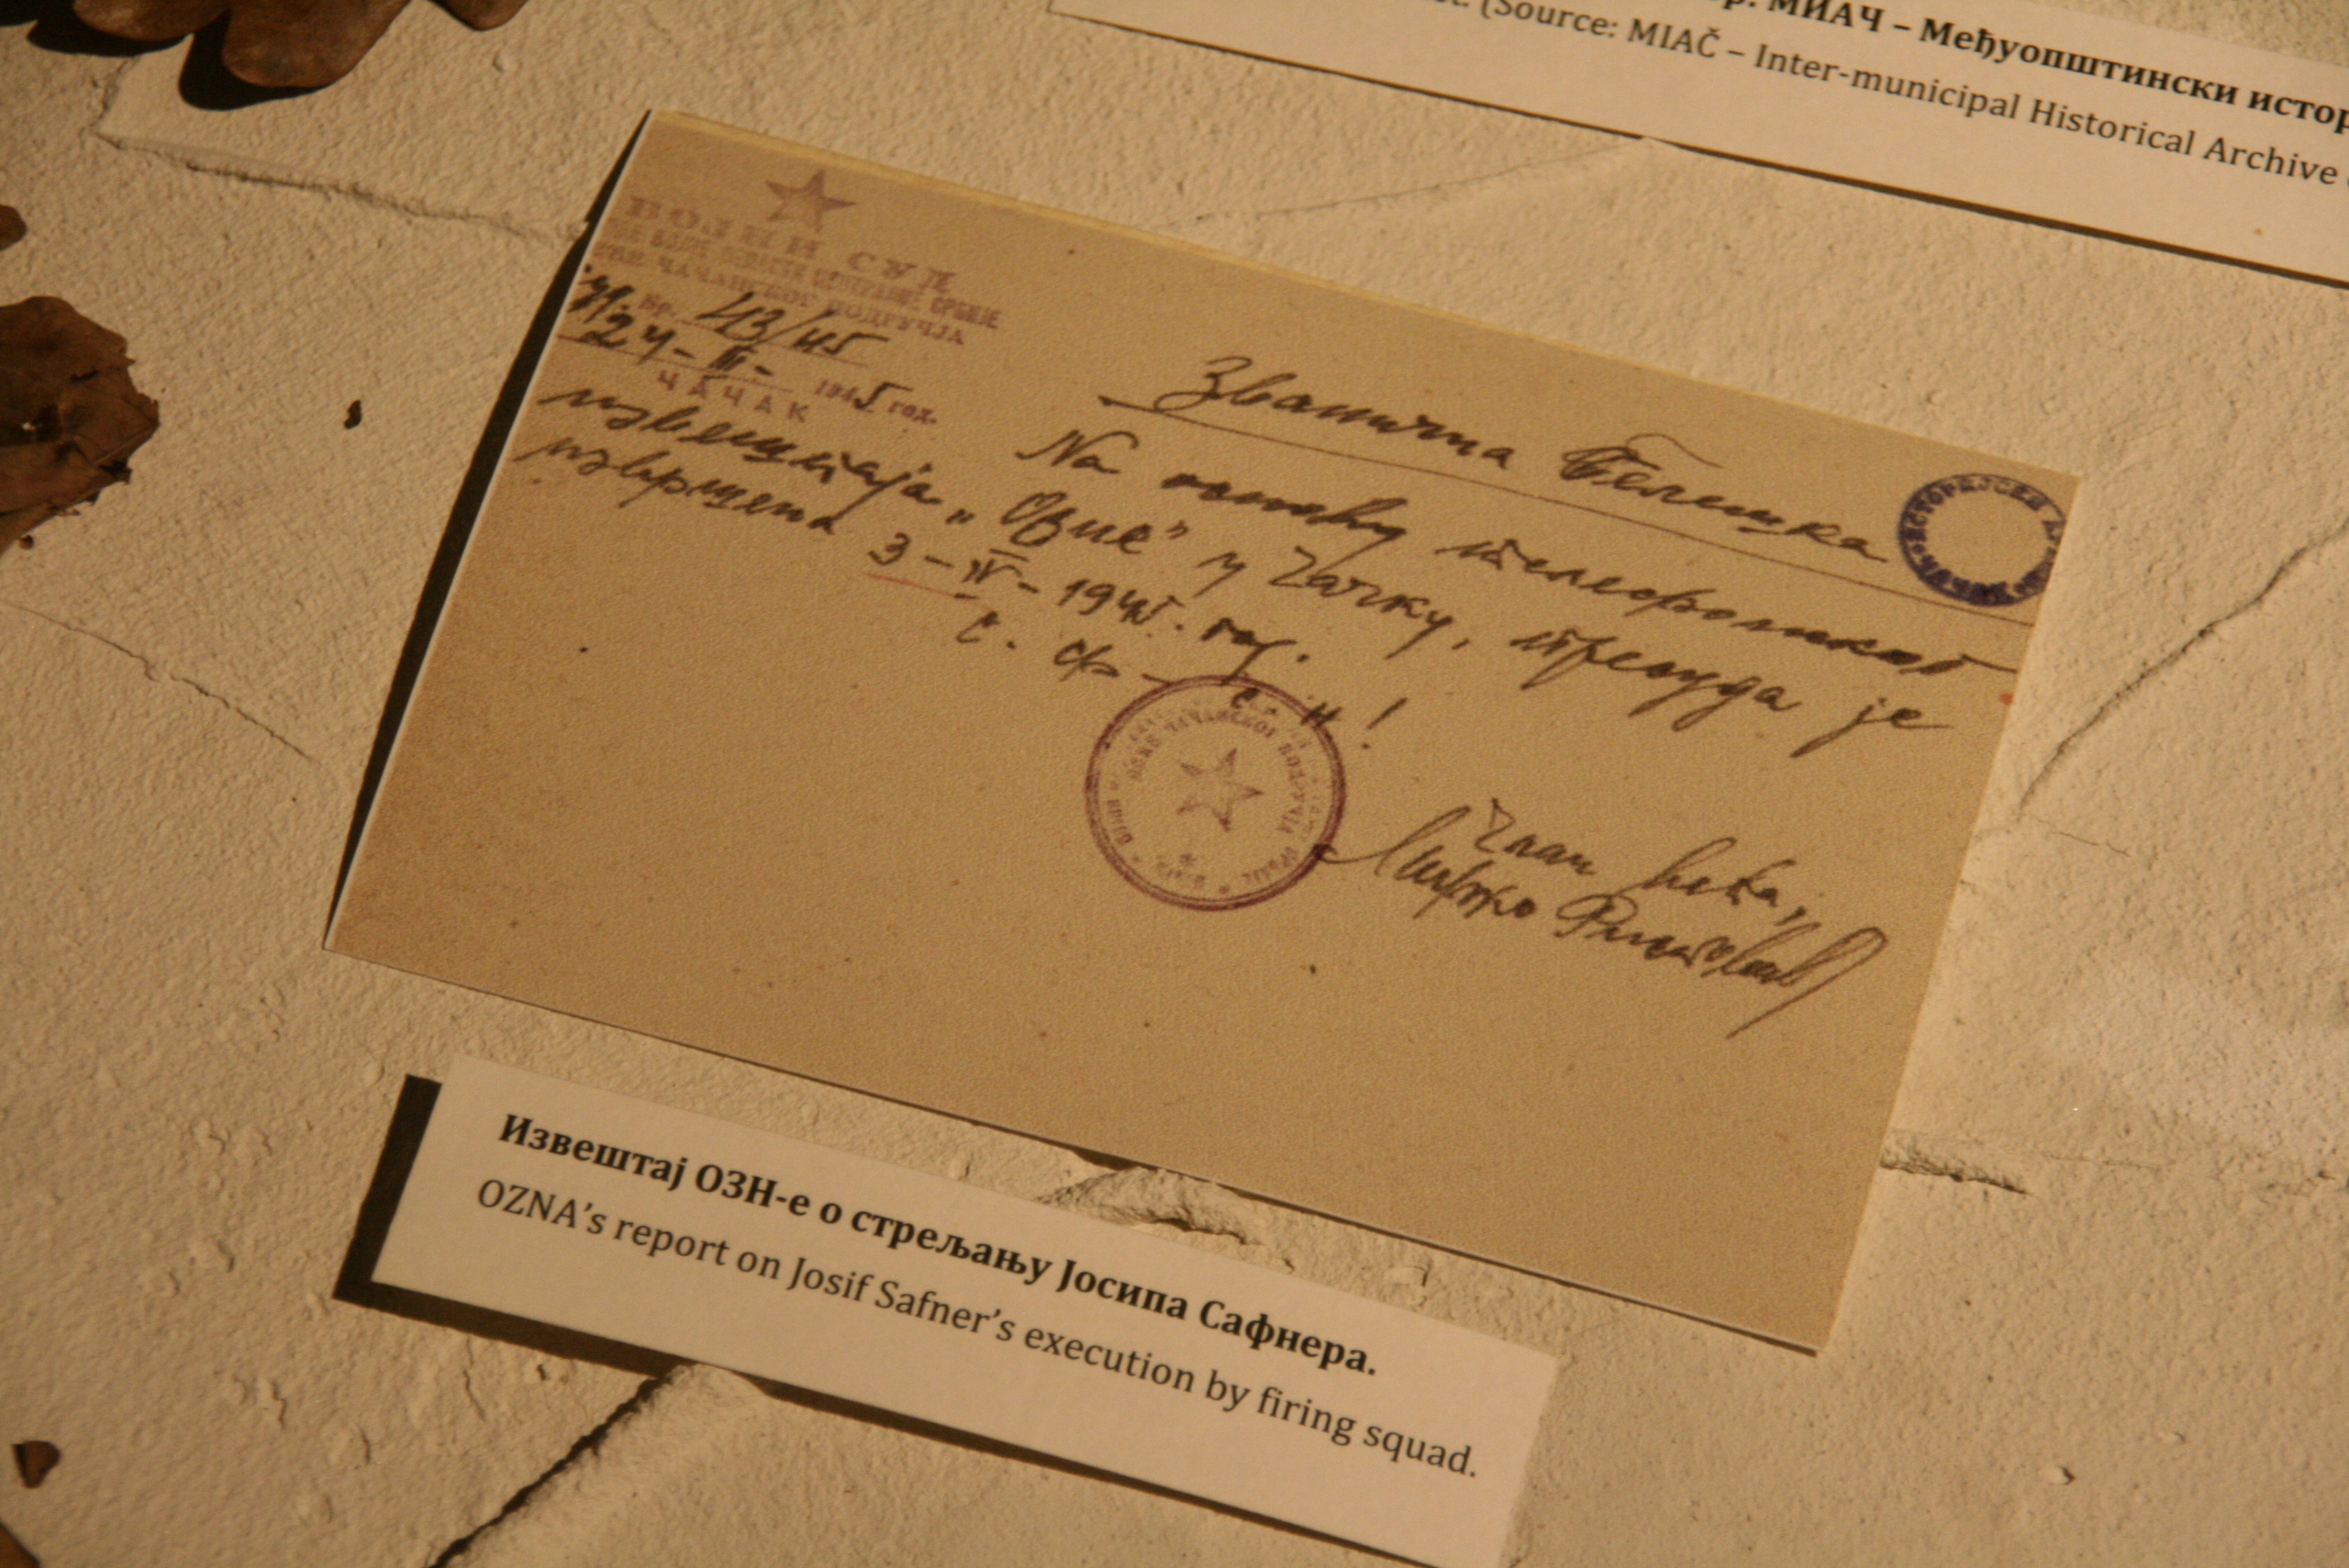 МИАЧ – Међуопштински
(Source: MIAČ – Inter-municipal Historical Archive
ВОЈНИ СУД
ЧАЧАНСКОГ ПОДРУЧЈА
Бр. 43/45
24 - III - 1945 год.
ЧАЧАК
Званична белешка
На основу телефонског
извештаја „Озне" у Чачку, пресуда је
извршена 3 - IV - 1945. год.
С. Ф. - С. Н!
Члан већа,
Извештај ОЗН-е о стрељању Јосипа Сафнера.
OZNA's report on Josif Safner's execution by firing squad.